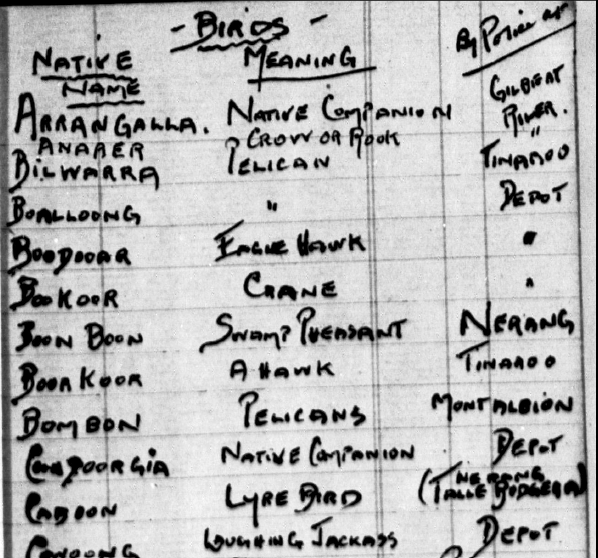 - BIRDS -
NATIVE NAME MEANING By Police at
ARRANGALLA. NATIVE COMPANION GILBERT RIVER.
ANAPER CROW OR ROOK "
BILWARRA PELICAN TINAROO
BOALLOONG " DEPOT
BOODOOAR EAGLE HAWK "
BOOKOOR CRANE "
BOON BOON SWAMP PHEASANT NERANG
BOORKOOR A HAWK TINAROO
BOMBON PELICANS MONTALBION
NATIVE COMPANION DEPOT
CABOON LYRE BIRD (NERANG TALLEBUDGERA)
LAUGHING JACKASS DEPOT